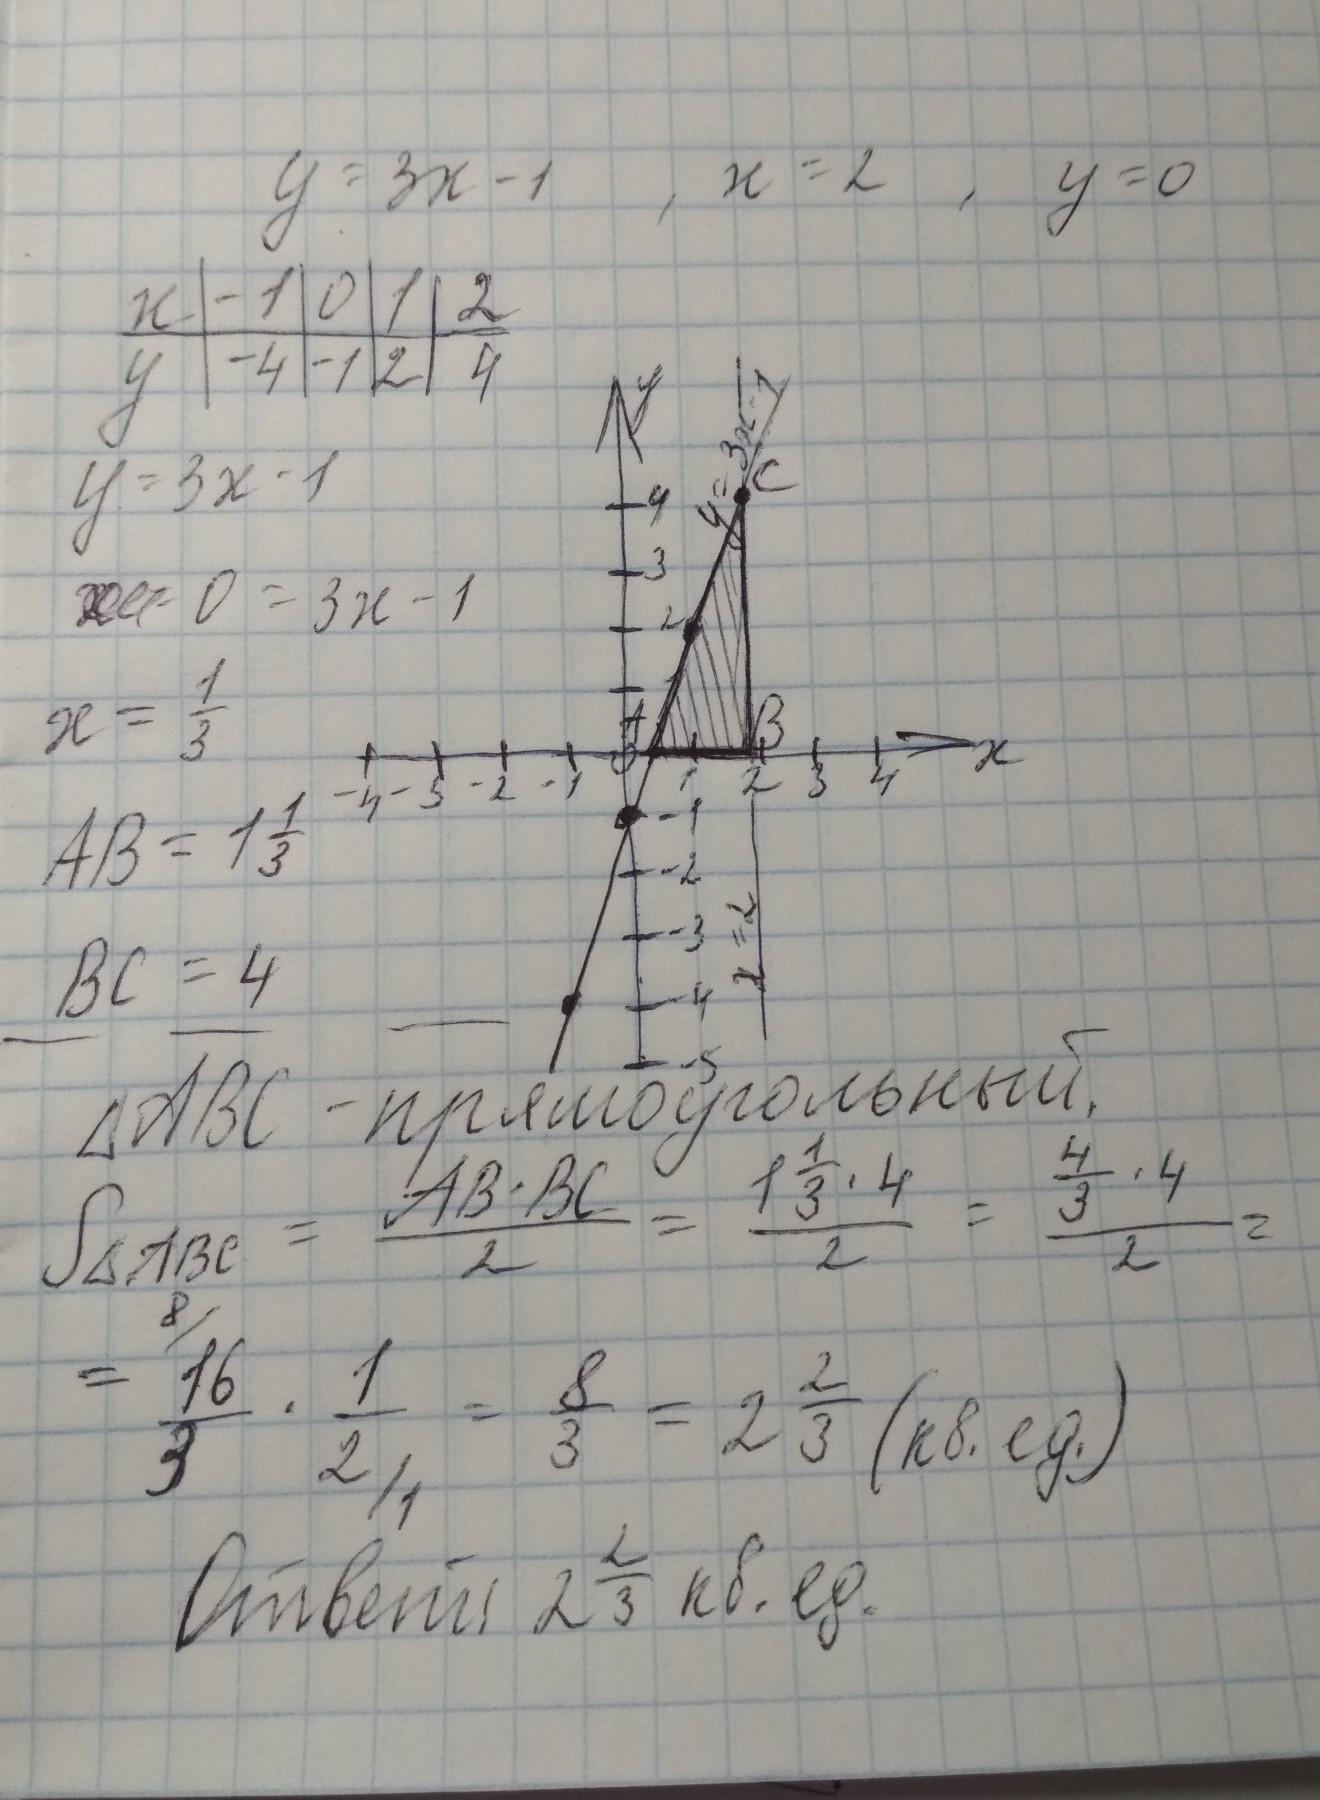 y = 3x - 1 , x = 2 , y = 0
x | -1 | 0 | 1 | 2
y | -4 | -1 | 2 | 4
y = 3x - 1
0 = 3x - 1
x = 1/3
AB = 1 1/3
BC = 4
y
y = 3x - 1
C
4
3
2
1
A
B
0
x
-4 -3 -2 -1 1 2 3 4
-1
-2
-3
-4
-5
x = 2
△ABC - прямоугольный.
S△ABC = AB · BC / 2 = 1 1/3 · 4 / 2 = 4/3 · 4 / 2 =
8/
= 16/3 · 1/2 /1 = 8/3 = 2 2/3 (кв. ед.)
Ответ: 2 2/3 кв. ед.